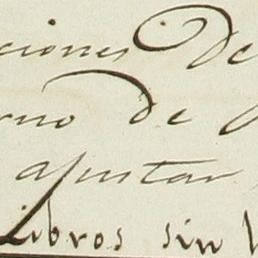 ciones de
rno de
apuntar
Libros sin